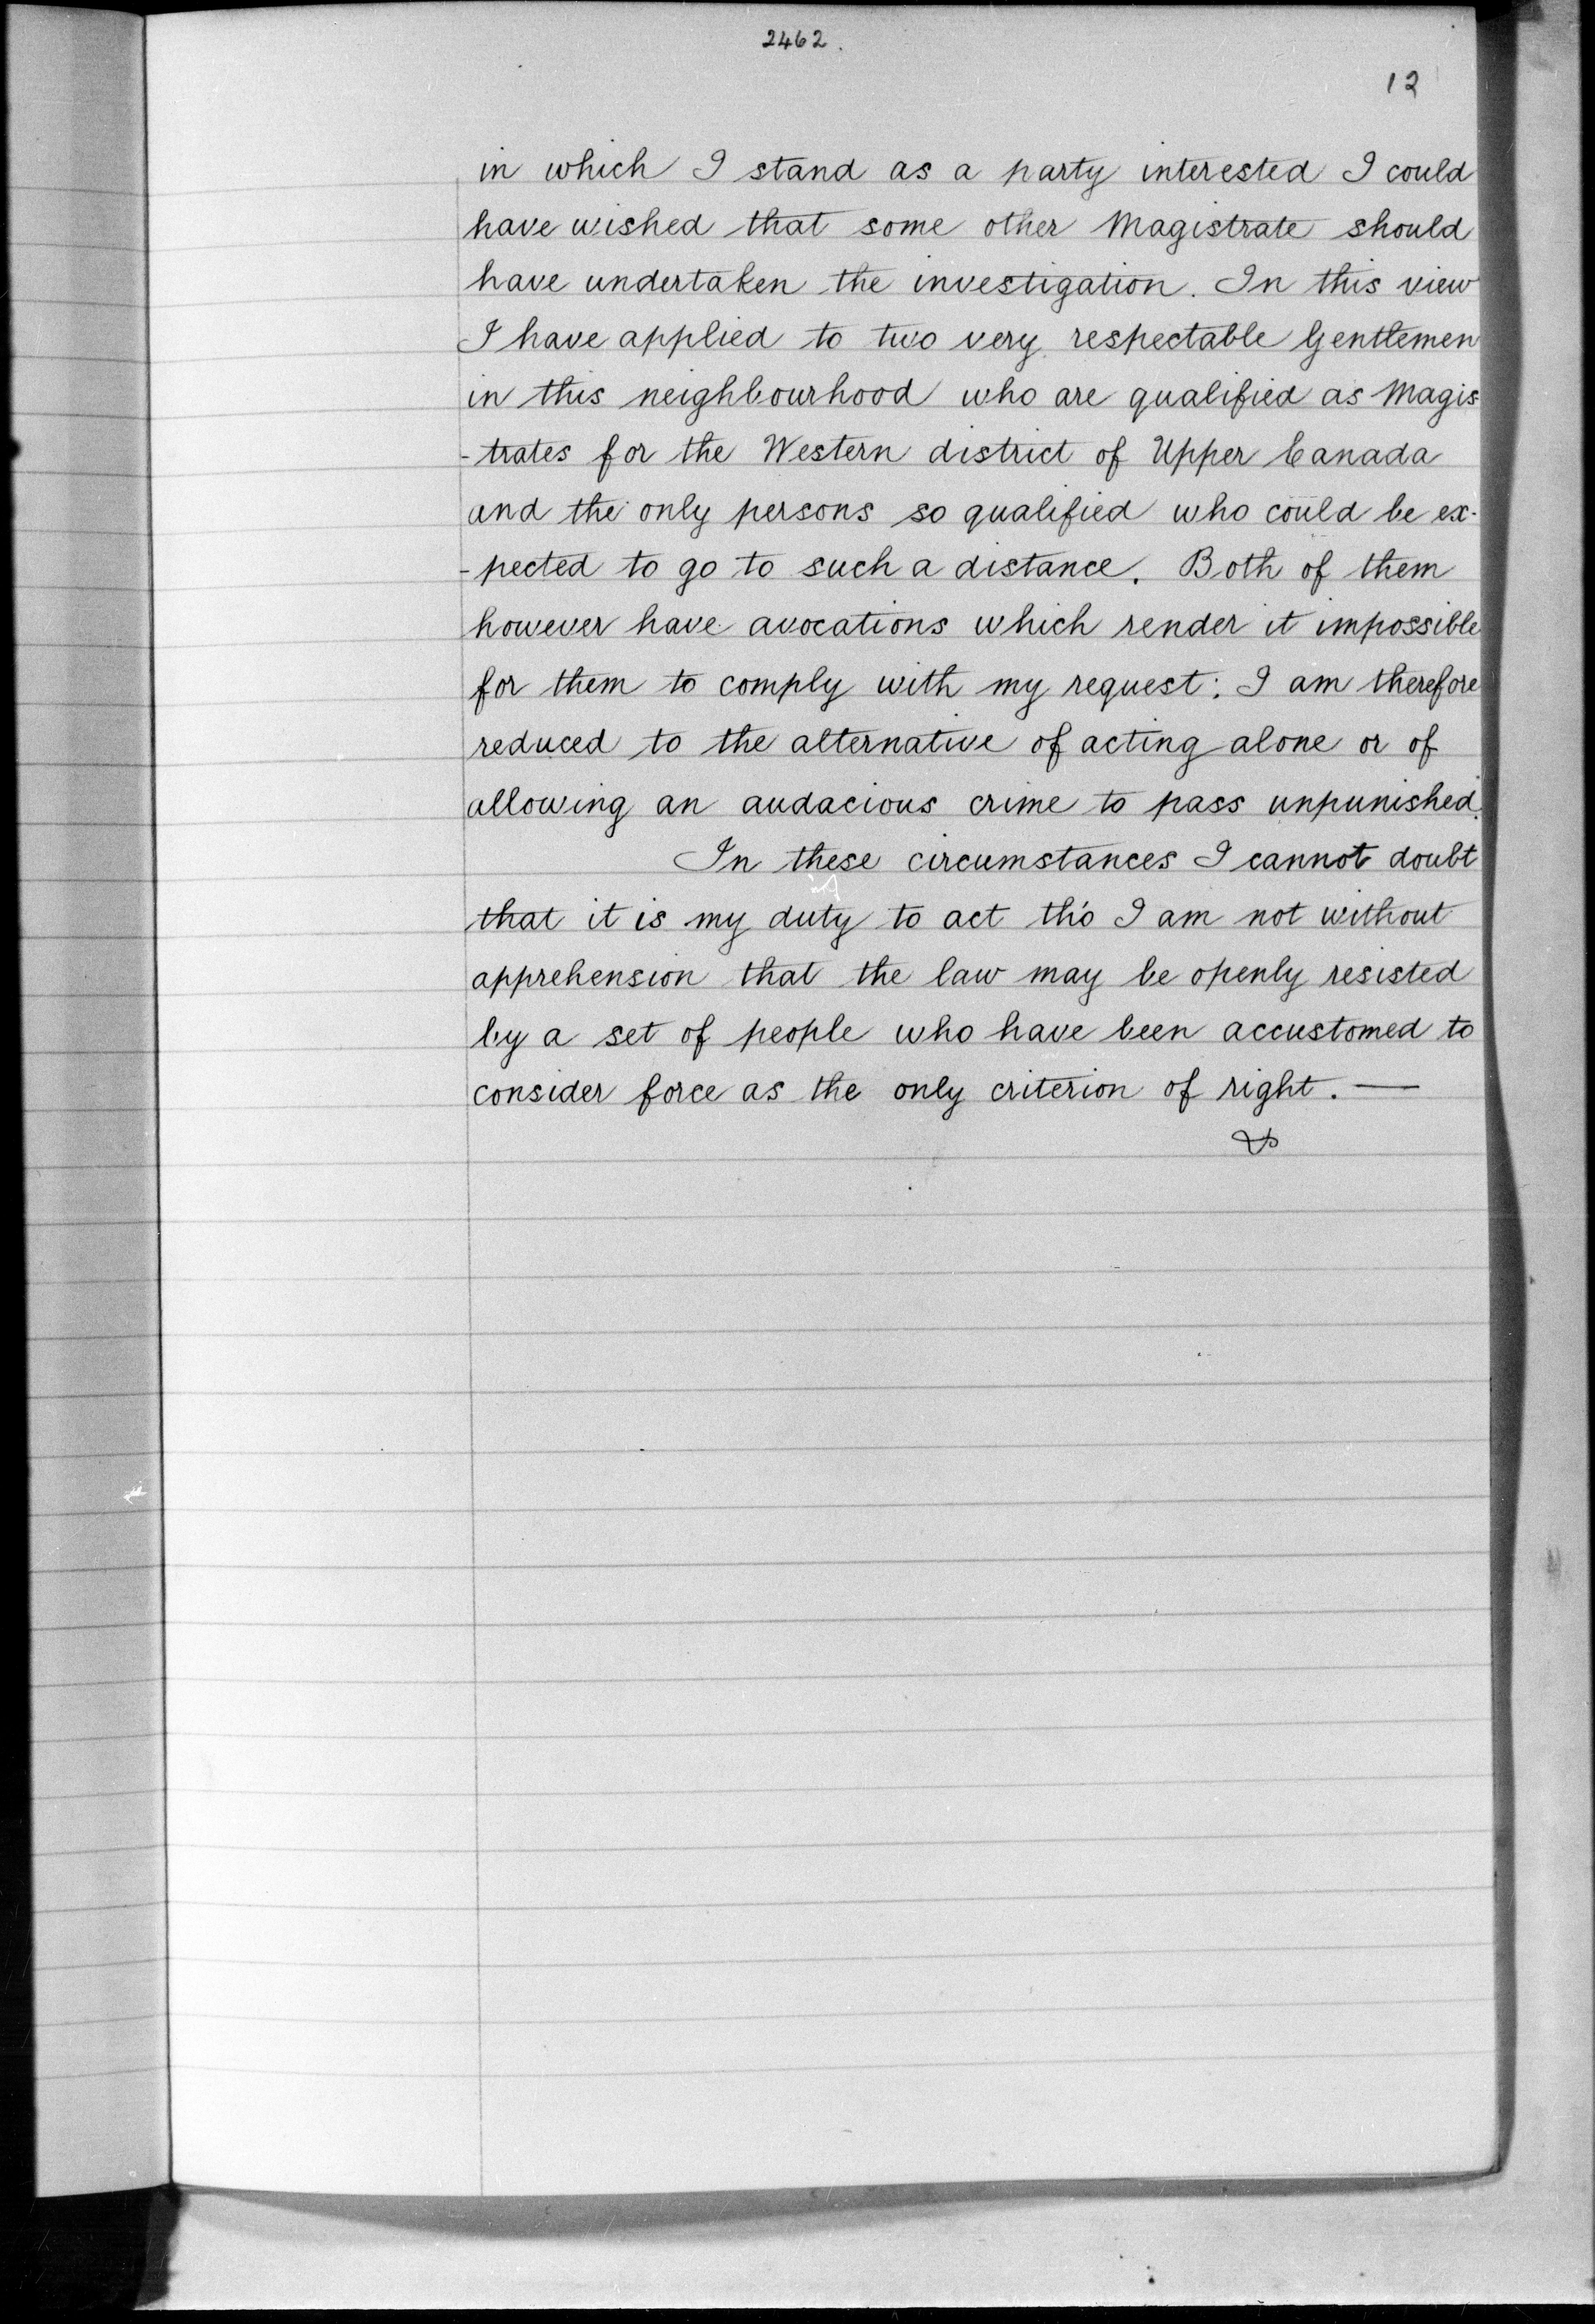 2462.
12
in which I stand as a party interested I could
have wished that some other Magistrate should
have undertaken the investigation. In this view
I have applied to two very respectable Gentlemen
in this neighbourhood who are qualified as Magis
-trates for the Western district of Upper Canada
and the only persons so qualified who could be ex-
-pected to go to such a distance. Both of them
however have avocations which render it impossible
for them to comply with my request: I am therefore
reduced to the alternative of acting alone or of
allowing an audacious crime to pass unpunished.
In these circumstances I cannot doubt
that it is my duty to act tho' I am not without
apprehension that the law may be openly resisted
by a set of people who have been accustomed to
consider force as the only criterion of right. —